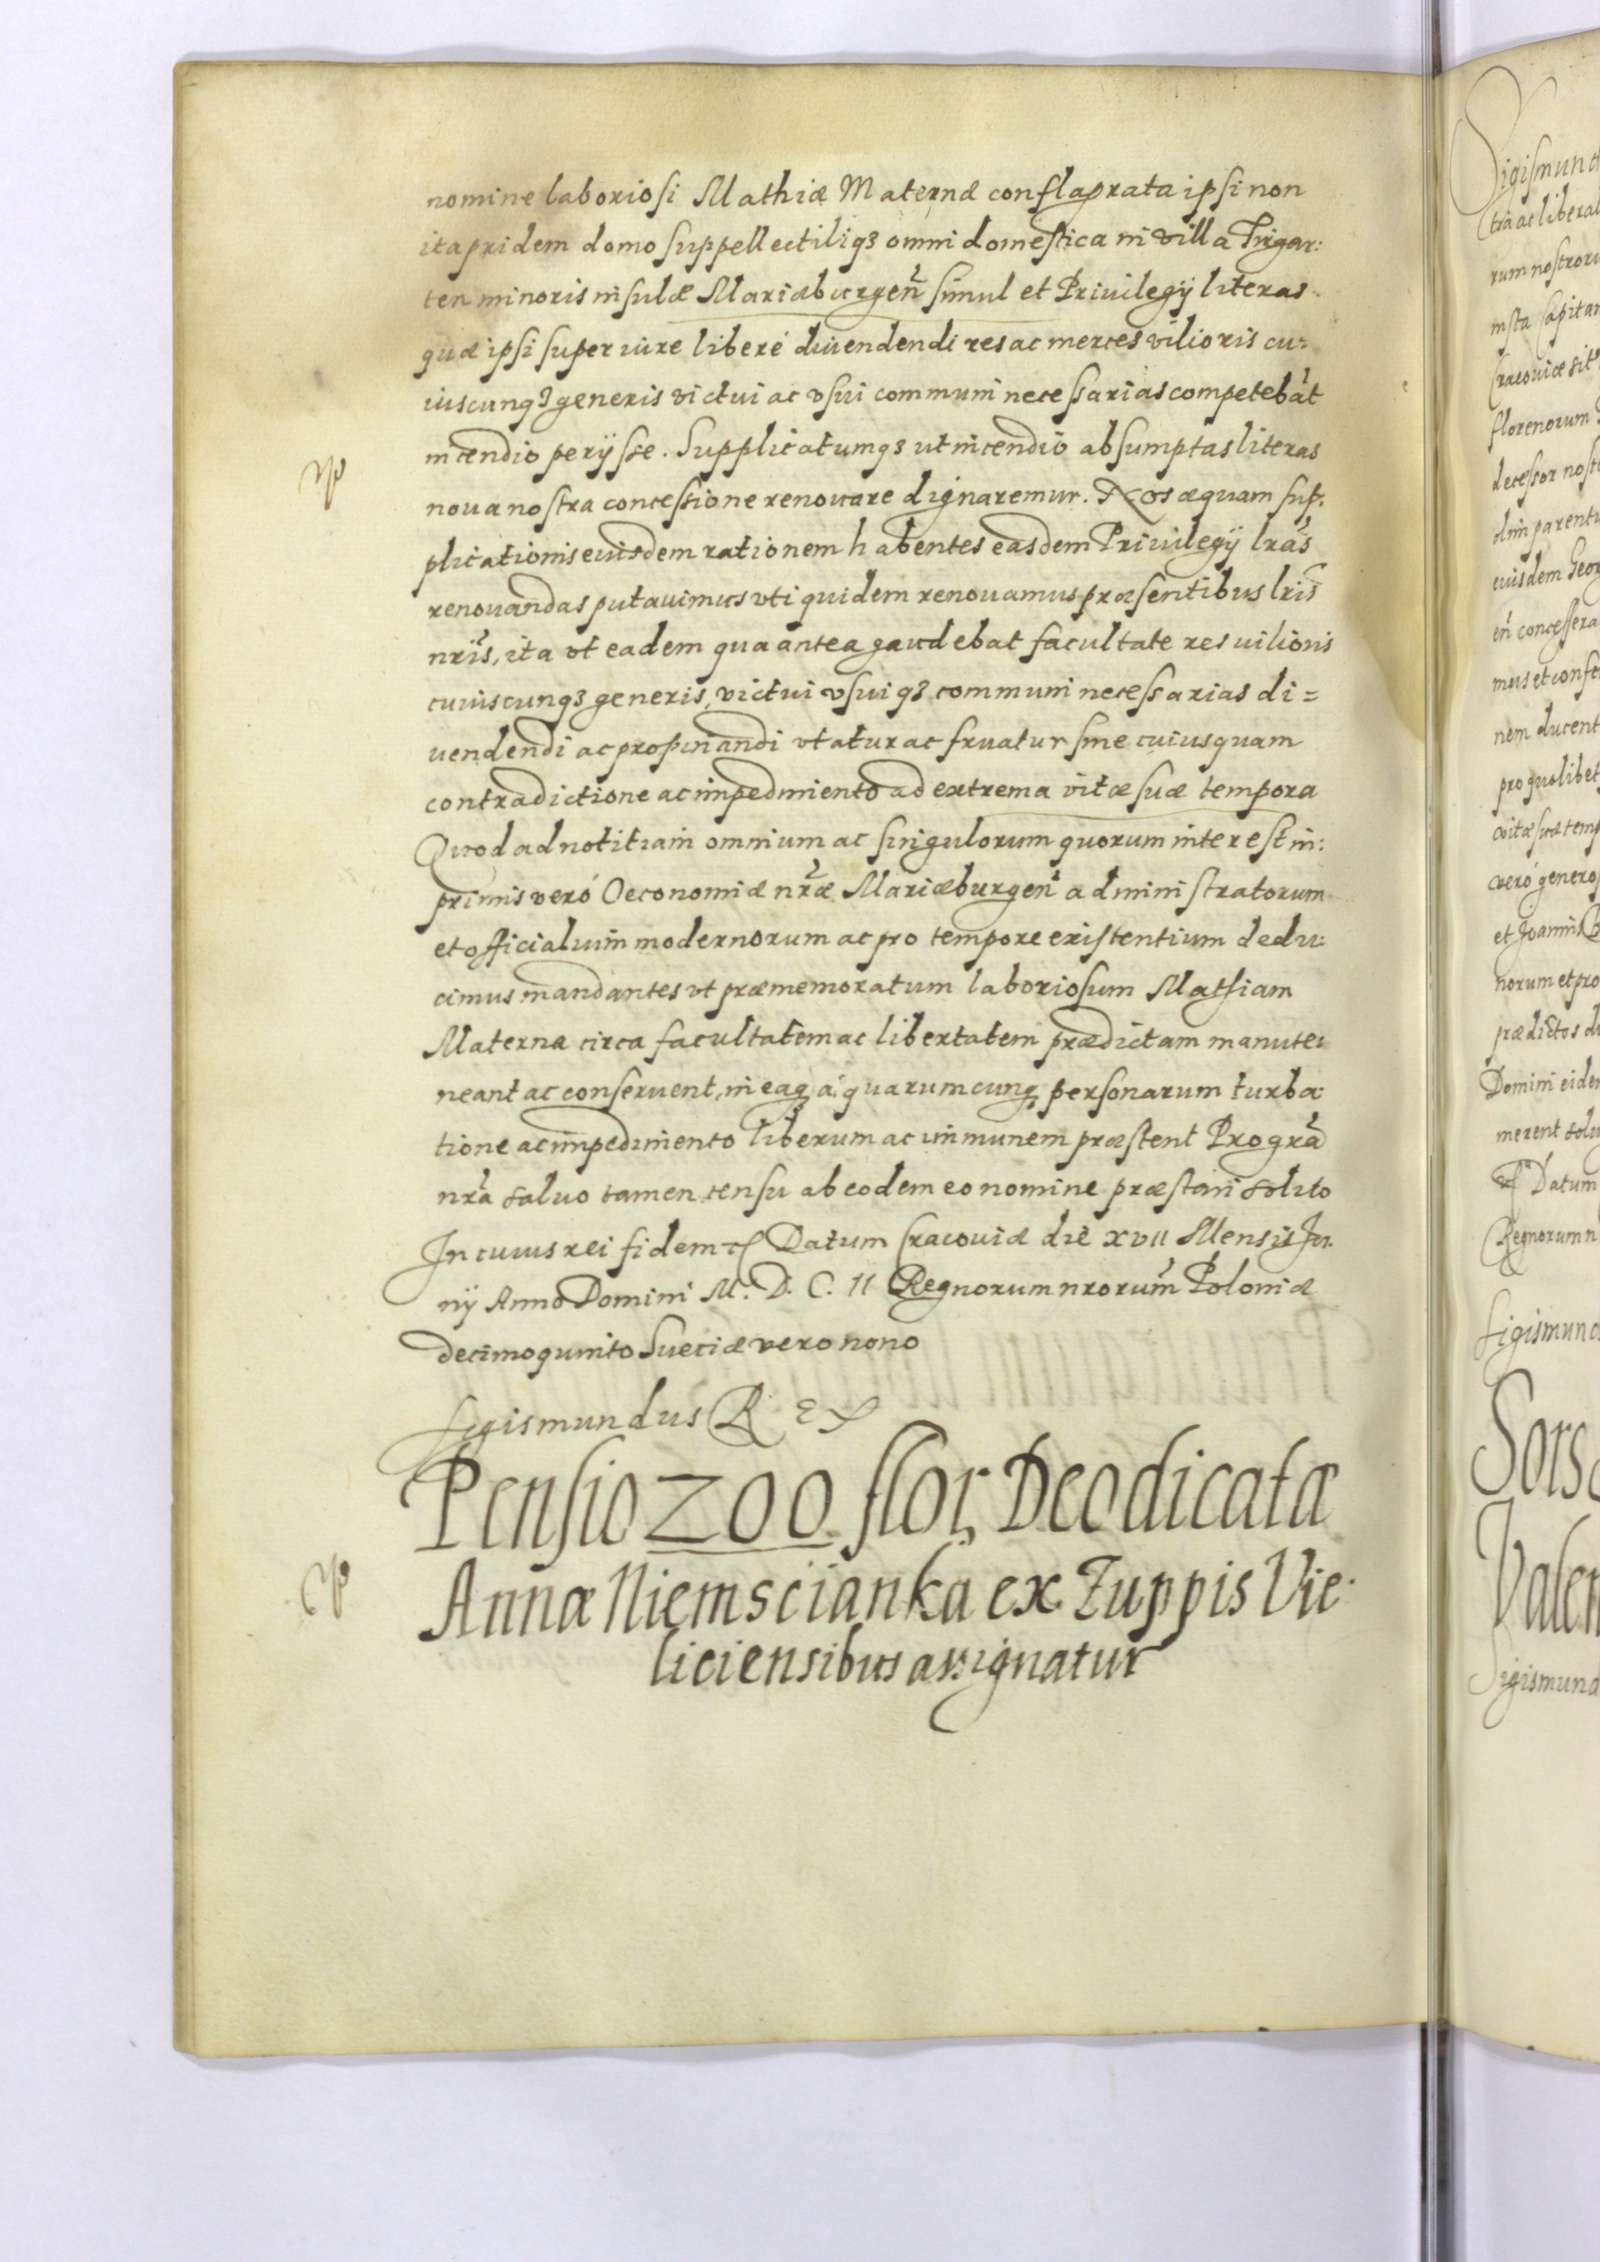 nomine laboriosi Mathiæ Maternæ conflagrata ipsi non
ita pridem domo suppellectiliq3 omni domestica in villa Tigar:
ten minoris insulæ Mariæburgen̄ simul et Priuilegÿ literas
quæ ipsi super iure liberè diuendendi res ac merces vilioris cu:
iuscunq3 generis victui ac vsui communi necessarias competebāt
incendio perÿsse. Supplicatumq3 ut incendio absumptas literas
noua nostra concessione renouare dignaremur. Nos æquam sup:
plicationis eiusdem rationem habentes easdem Priuilegÿ lrās
renouandas putauimus vti quidem renouamus præsentibus lris̄
nrīs, ita vt eadem qua antea gaudebat facultate res vilioris
cuiuscunq3 generis, victui vsuiq3 communi necessarias di=
uendendi ac propinandi vtatur ac fruatur sine cuiusquam
contradictione ac impedimento ad extrema vitæ suæ tempora
Quod ad notitiam omnium ac singulorum quorum interest in:
primis verò Oeconomiæ nrǣ Mariæburgen̄ administratorum
et officialium modernorum ac pro tempore existentium dedu:
cimus mandantes vt præmemoratum laboriosum Mathiam
Materna circa facultatem ac libertatem prædictam manute:
neant ac conseruent, in eaq3 à quarumcunq3 personarum turba:
tione ac impedimento liberum ac immunem præstent Pro grā
nrā saluo tamen censu ab eodem eo nomine præstari solito
In cuius rei fidem etc Datum Cracouiæ die XVII Mensis Ju:
nÿ Anno Domini M. D. C. II Regnorum nrorum̄ Poloniæ
decimoquinto Sueciæ vero nono
Sigismundus Rex
Pensio 200 flor, Deodicatæ
Annæ Niemscianka ex Zuppis Vie:
liciensibus assignatur
Sigismund
rum nostroru
florenorum
decessor nost
olim parentu
eiusdem Geor
en̄ concessera
mus et confe
nem ducent
pro quolibet
vitæ suæ temp
verò generos
norum et pro
prædictos du
Domini eider
merent solu
Datum
Regnorum n
Sigismund
Sors
Valen
Sigismund